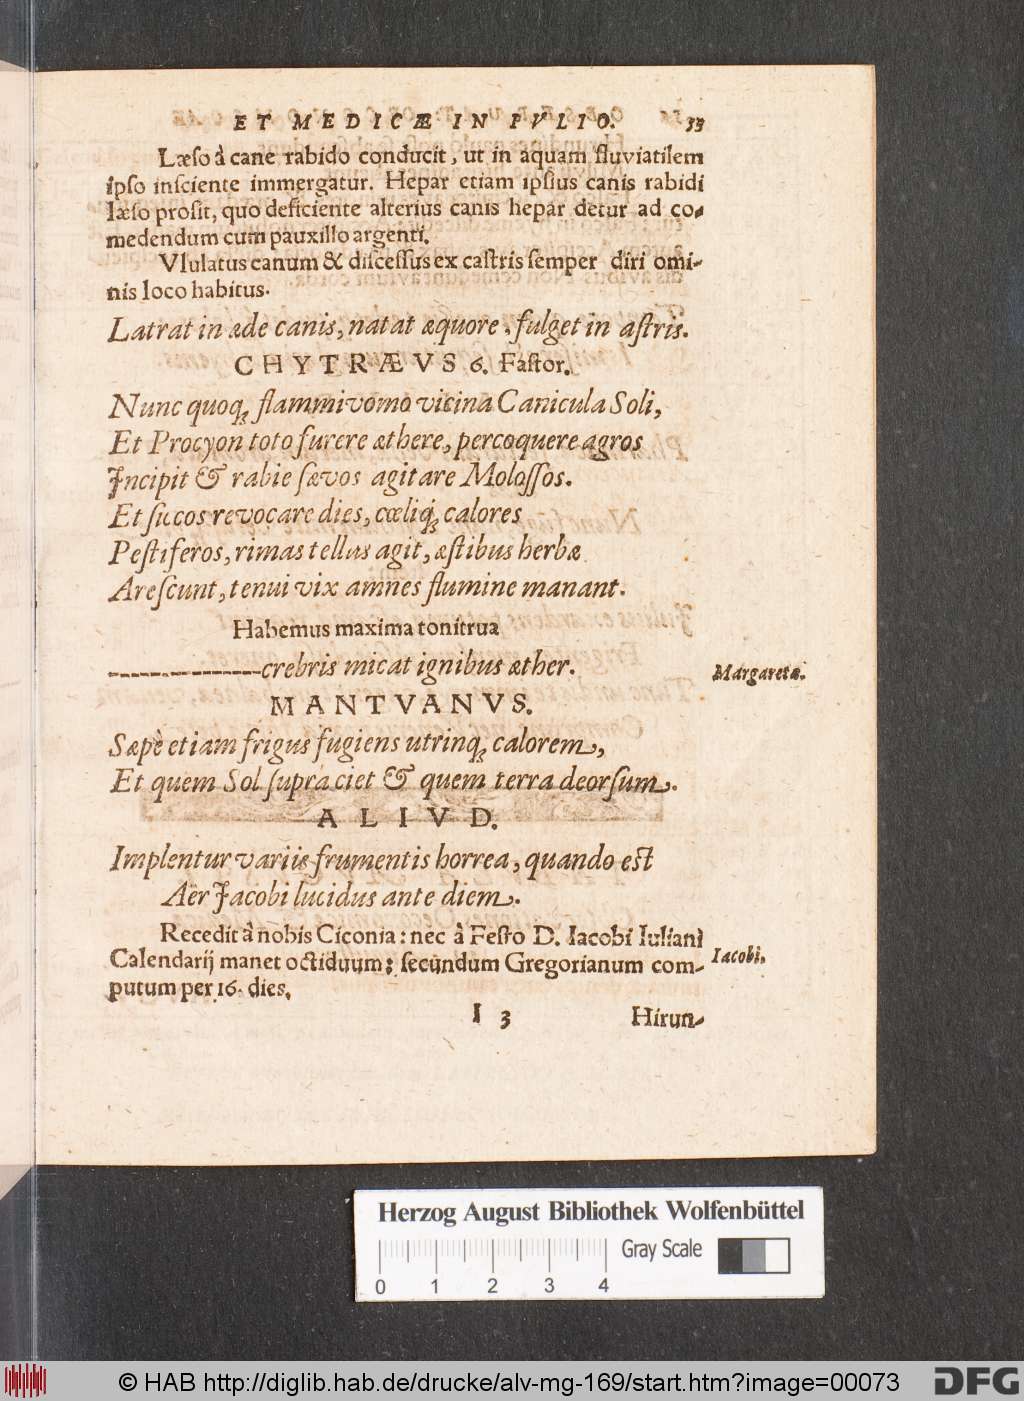 ET MEDICÆ IN IVLIO. 33
Læſo à cane rabido conducit, ut in aquam fluviatilem
ipſo inſciente immergatur. Hepar etiam ipſius canis rabidi
læſo profit, quo deficiente alterius canis hepar detur ad co-
medendum cum pauxillo argenti.
Vlulatus canum & diſceſſus ex caſtris ſemper diri omi-
nis loco habitus.
Latrat in æde canis, natat æquore, fulget in aſtris.
CHYTRÆVS 6. Faſtor.
Nunc quoq; flammivomo vicina Canicula Soli,
Et Procyon toto furere æthere, percoquere agros
Incipit & rabie ſævos agitare Moloſſos.
Et ſucos revocare dies, cœliq; calores
Peſtiferos, rimas tellus agit, æſtibus herbæ
Areſcunt, tenui vix amnes flumine manant.
Habemus maxima tonitrua
--------------crebris micat ignibus æther.
Margaretæ.
MANTVANVS.
Sæpè etiam frigus fugiens utrinq; calorem,
Et quem Sol ſupra ciet & quem terra deorſum.
ALIVD.
Implentur variis frumentis horrea, quando eſt
Aër Jacobi lucidus ante diem.
Recedit à nobis Ciconia: nec à Feſto D. Iacobi Iuliani
Calendarij manet octiduum; ſecundum Gregorianum com-
Iacobi.
putum per 16. dies.
I 3 Hirun-
Herzog August Bibliothek Wolfenbüttel
Gray Scale
0 1 2 3 4
© HAB http://diglib.hab.de/drucke/alv-mg-169/start.htm?image=00073
DFG